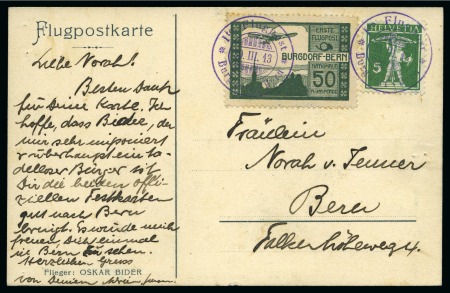 Flugpostkarte
Liebe Norah!
Besten Dank
für Deine Karte. Ich
hoffe, dass Bider, der
mir sehr imponiert
u. überhaupt ein ta-
delloser Bürger ist
Dir die beiden offi-
ziellen Festkarten
gut nach Bern
bringt. Es würde mich
freuen Dich einmal
in Bern zu sehen.
Herzlichen Gruss
von Deinem
Flieger: OSKAR BIDER
III. 13
ERSTE
FLUGPOST
BURGDORF-BERN
NATIONALE
50
FLUGSPENDE
HELVETIA
5
Fräulein
Norah v. Jenner
Bern
Falkenhöheweg